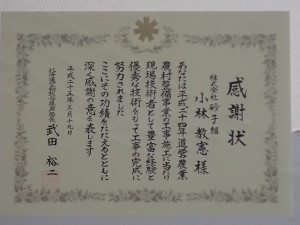 感謝状
株式会社砂子組
小林 教憲 様
あなたは平成二十四年道営農業
農村整備事業の工事施工に当り
現場技術者として豊富な経験と
優秀な技術をもって工事の完成に
努力されました
ここにその功績をたたえるとともに
深く感謝の意を表します
平成二十五年三月十九日
武田 裕二